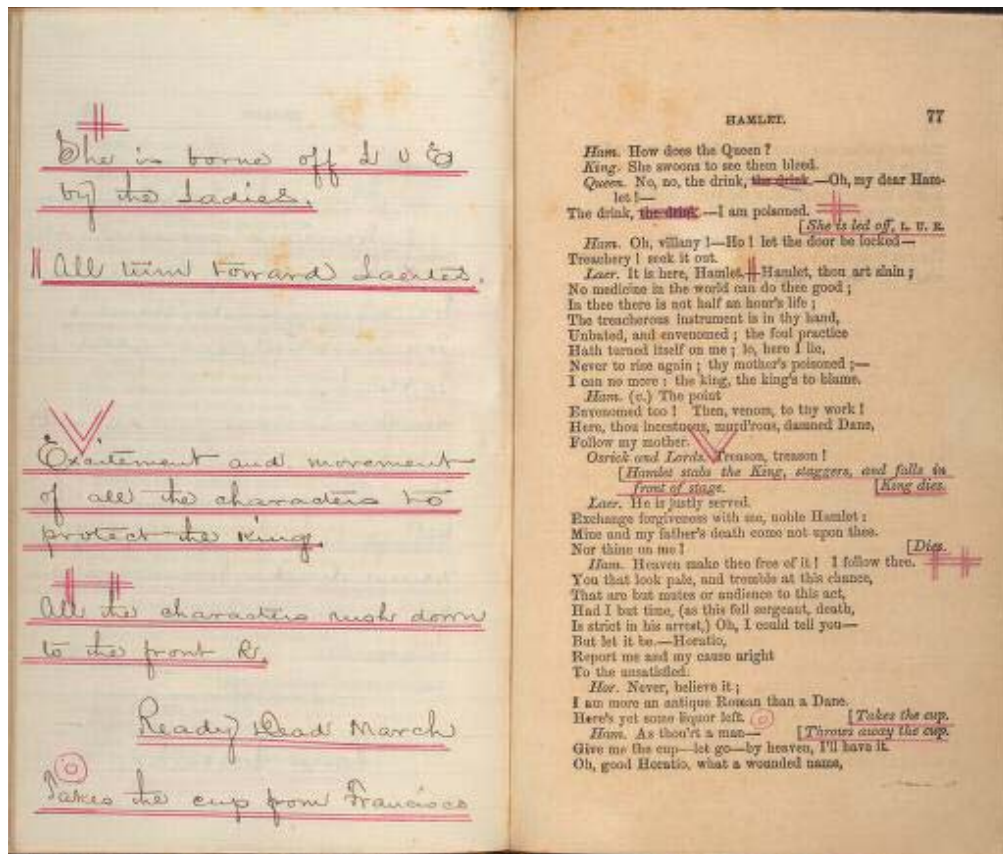 She is borne off L U E
by the Ladies.
All turn toward Laertes.
Excitement and movement
of all the characters to
protect the King.
All the characters rush down
to the front R.
Ready Dead March
Takes the cup from Francisco
HAMLET. 77
Ham. How does the Queen?
King. She swoons to see them bleed.
Queen. No, no, the drink, the drink.—Oh, my dear Ham-
let!—
The drink, the drink.—I am poisoned.
[She is led off, L. U. E.
Ham. Oh, villany!—Ho! let the door be locked—
Treachery! seek it out.
Laer. It is here, Hamlet. Hamlet, thou art slain;
No medicine in the world can do thee good;
In thee there is not half an hour's life;
The treacherous instrument is in thy hand,
Unbated, and envenomed; the foul practice
Hath turned itself on me; lo, here I lie,
Never to rise again; thy mother's poisoned;—
I can no more: the king, the king's to blame.
Ham. (c.) The point
Envenomed too! Then, venom, to thy work!
Here, thou incestuous, murd'rous, damned Dane,
Follow my mother.
Osrick and Lords. Treason, treason!
[Hamlet stabs the King, staggers, and falls in
front of stage. [King dies.
Laer. He is justly served.
Exchange forgiveness with me, noble Hamlet:
Mine and my father's death come not upon thee.
Nor thine on me! [Dies.
Ham. Heaven make thee free of it! I follow thee.
You that look pale, and tremble at this chance,
That are but mutes or audience to this act,
Had I but time, (as this fell sergeant, death,
Is strict in his arrest,) Oh, I could tell you—
But let it be.—Horatio,
Report me and my cause aright
To the unsatisfied.
Hor. Never, believe it;
I am more an antique Roman than a Dane.
Here's yet some liquor left. [Takes the cup.
Ham. As thou'rt a man— [Throws away the cup.
Give me the cup—let go—by heaven, I'll have it.
Oh, good Horatio, what a wounded name,